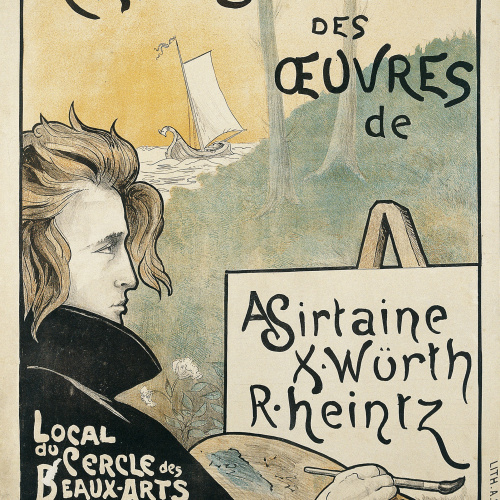 DES
ŒUVRES
de
A Sirtaine
X. Würth
R. heintz
LOCAL
du CERCLE des
BEAUX-ARTS